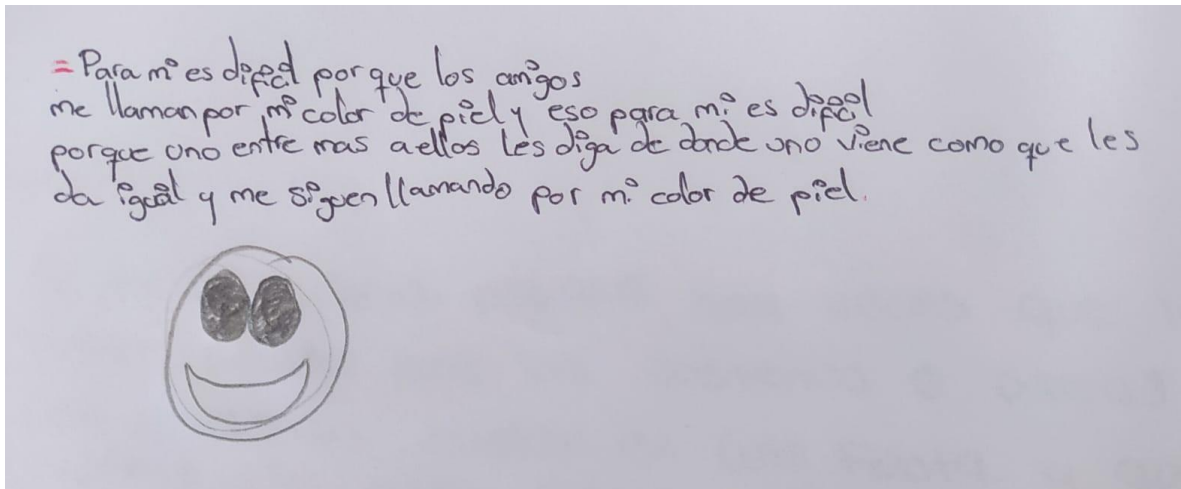 = Para mi es dificil porque los amigos
me llaman por mi color de piel y eso para mi es dificil
porque uno entre mas a ellos les diga de donde uno viene como que les
da igual y me siguen llamando por mi color de piel.